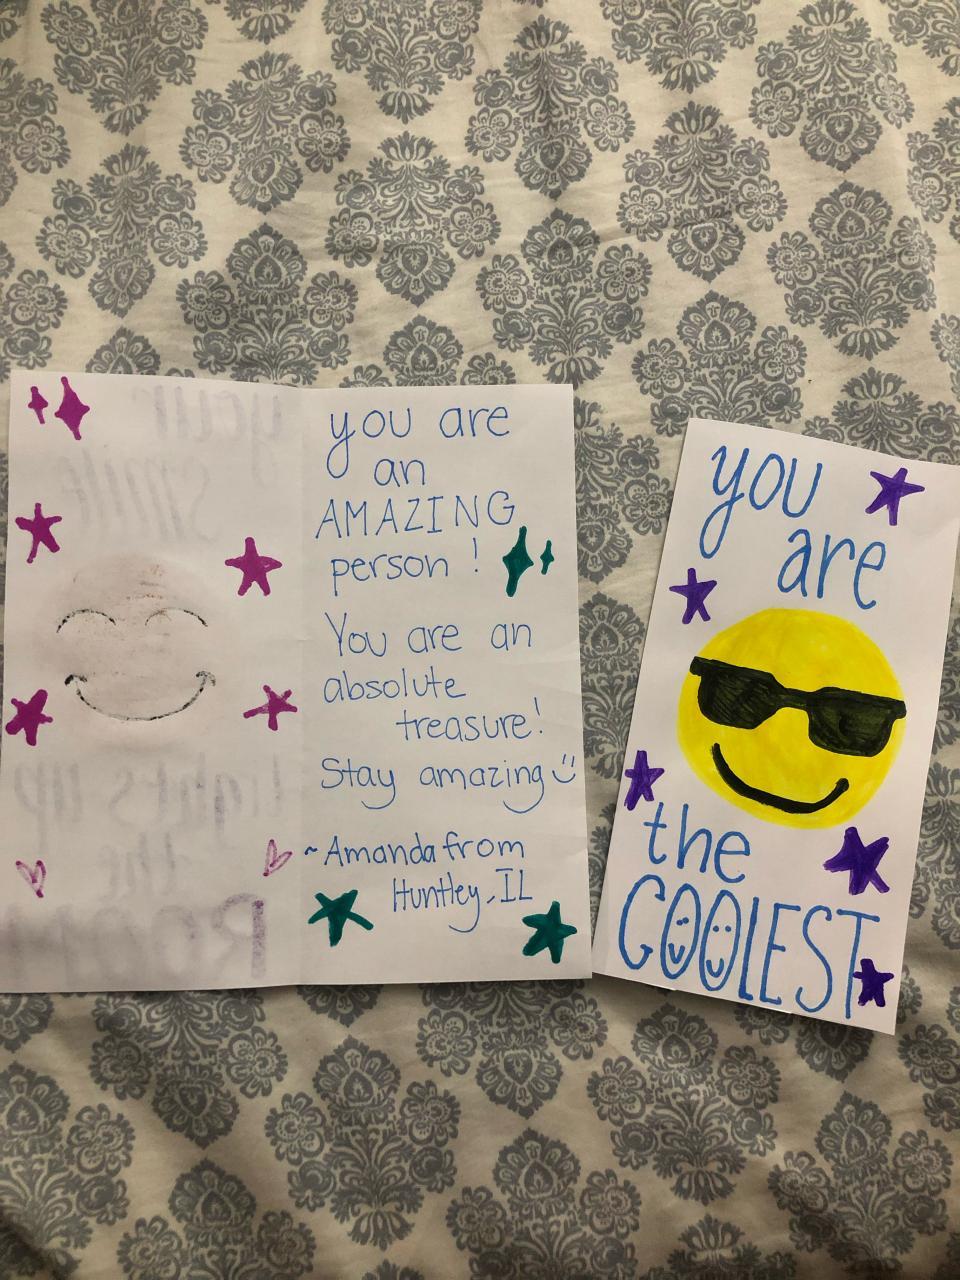 your
smile
lights up
the
Room
you are
an
AMAZING
person !
You are an
absolute
treasure!
Stay amazing
~Amanda from
Huntley, IL
you
are
the
COOLEST